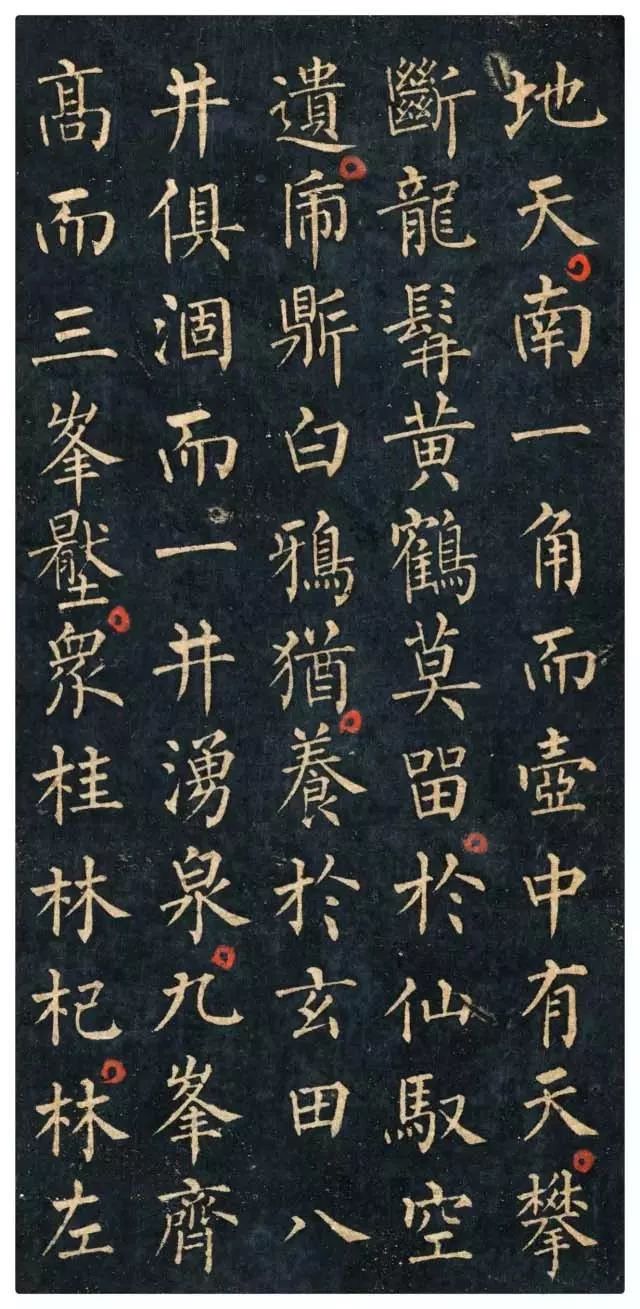 地天南一角而壺中有天攀
斷龍髯黃鶴莫留於仙馭空
遺乕鼎白鴉猶養於玄田八
井俱涸而一井湧泉九峯齊
髙而三峯壓衆桂林杞林左